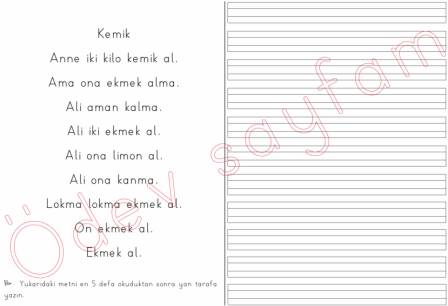 Kemik
Anne iki kilo kemik al.
Ama ona ekmek alma.
Ali aman kalma.
Ali iki ekmek al.
Ali ona limon al.
Ali ona kanma.
Lokma lokma ekmek al.
On ekmek al.
Ekmek al.
Yukarıdaki metni en 5 defa okuduktan sonra yan tarafa
yazın.
Ödev sayfam